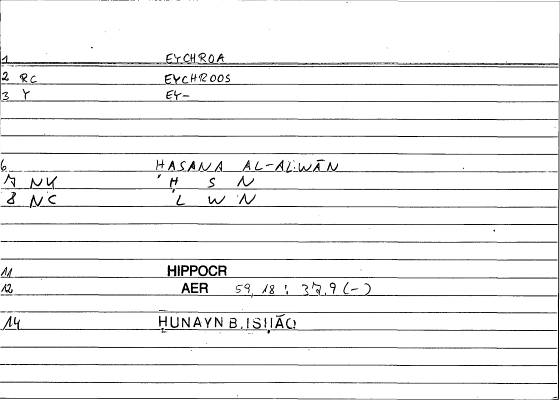 1 EYCHROA
2 RC EYCHROOS
3 Y EY-
6 ḤASANA AL-ALWĀN
7 NK Ḥ S N
8 NC ʾL W N
11 HIPPOCR
12 AER 59,18 : 37.9 (-)
14 ḤUNAYN B. ISḤĀQ